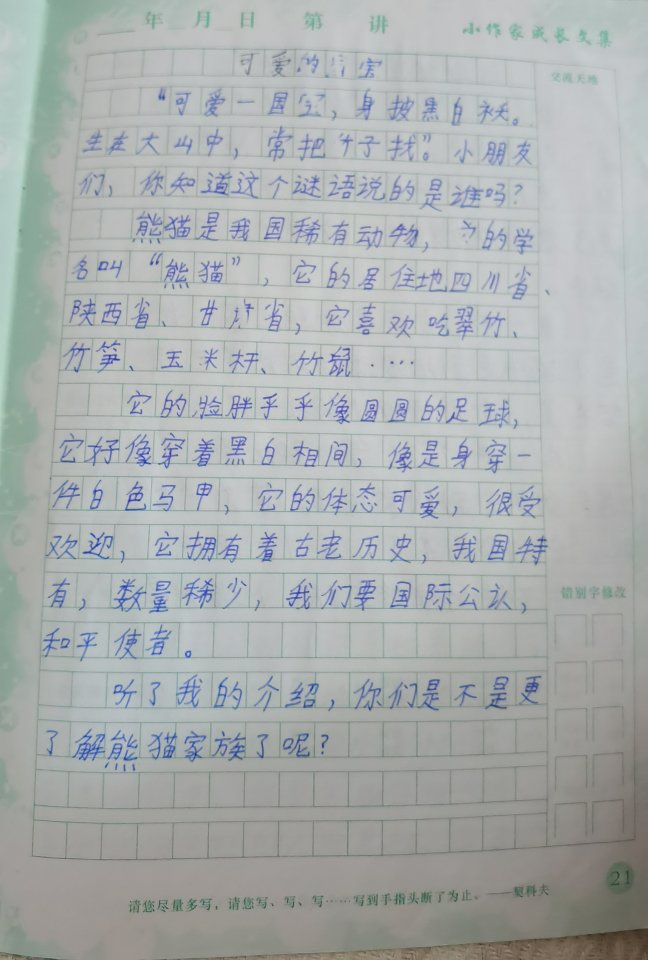 年 月 日 第 讲
小作家成长文集
可爱的国宝
交流天地
“可爱一国宝，身披黑白袄。
生在大山中，常把竹子找”。小朋友
们，你知道这个谜语说的是谁吗？
熊猫是我国稀有动物，它的学
名叫“熊猫”，它的居住地四川省、
陕西省、甘肃省，它喜欢吃翠竹、
竹笋、玉米杆、竹鼠……
它的脸胖乎乎像圆圆的足球，
它好像穿着黑白相间，像是身穿一
件白色马甲，它的体态可爱，很受
欢迎，它拥有着古老历史，我国特
有，数量稀少，我们要国际公认，
和平使者。
错别字修改
听了我的介绍，你们是不是更
了解熊猫家族了呢？
21
请您尽量多写，请您写、写、写……写到手指头断了为止。——契科夫